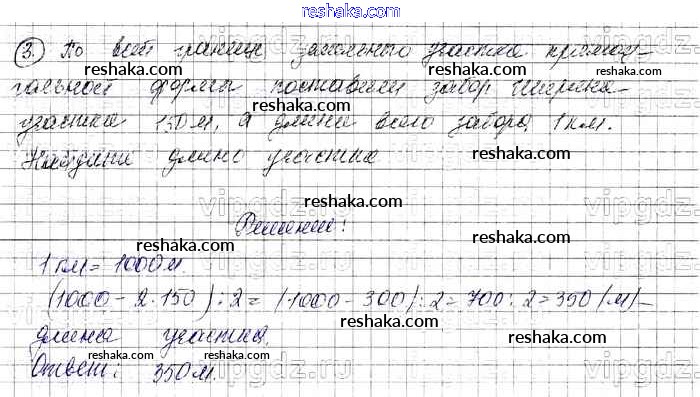 reshaka.com
3. По всей границе земельного участка прямоу-
reshaka.com reshaka.com
гольной формы поставили забор. Ширина
reshaka.com
участка 150 м, а длина всего забора 1 км.
reshaka.com reshaka.com
Найдите длину участка
reshaka.com
vipgdz.ru vipgdz.ru
reshaka.com
Решение:
1 км = 1000 м.
reshaka.com reshaka.com
(1000 - 2·150) : 2 = (1000 - 300) : 2 = 700 : 2 = 350 (м) -
reshaka.com
длина участка.
reshaka.com reshaka.com
Ответ: 350 м.
vipgdz.ru vipgdz.ru
reshaka.com